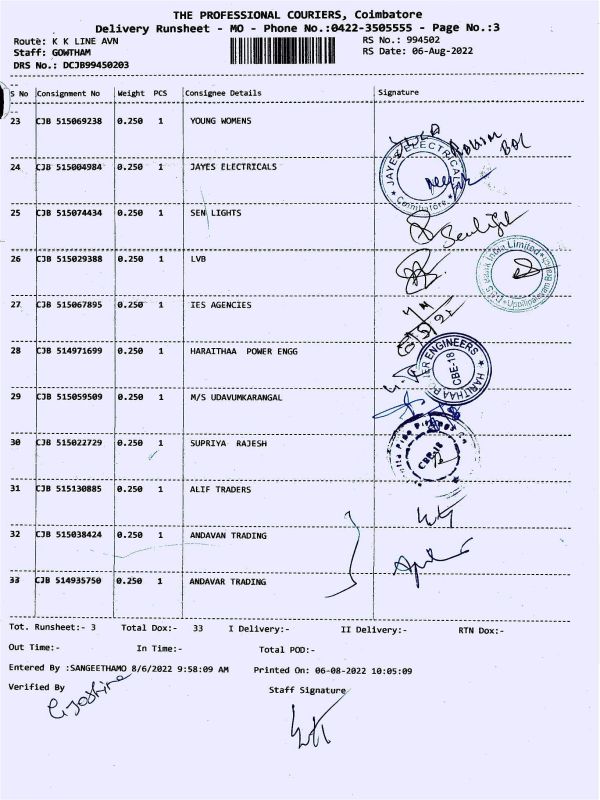 THE PROFESSIONAL COURIERS, Coimbatore
Delivery Runsheet - MO - Phone No.:0422-3505555 - Page No.:3
Route: K K LINE AVN RS No.: 994502
Staff: GOWTHAM RS Date: 06-Aug-2022
DRS No.: DCJB99450203
S No Consignment No Weight PCS Consignee Details Signature
23 CJB 515069238 0.250 1 YOUNG WOMENS
24 CJB 515004984 0.250 1 JAYES ELECTRICALS
JAYES ELECTRICALS
Coimbatore
25 CJB 515074434 0.250 1 SEN LIGHTS
26 CJB 515029388 0.250 1 LVB
Bank India Limited
Uppilipalayam
27 CJB 515067895 0.250 1 IES AGENCIES
28 CJB 514971699 0.250 1 HARAITHAA POWER ENGG
ENGINEERS
CBE-18
29 CJB 515059509 0.250 1 M/S UDAVUMKARANGAL
30 CJB 515022729 0.250 1 SUPRIYA RAJESH
CBE-18
31 CJB 515130885 0.250 1 ALIF TRADERS
32 CJB 515038424 0.250 1 ANDAVAN TRADING
33 CJB 514935750 0.250 1 ANDAVAR TRADING
Tot. Runsheet:- 3 Total Dox:- 33 I Delivery:- II Delivery:- RTN Dox:-
Out Time:- In Time:- Total POD:-
Entered By :SANGEETHAMO 8/6/2022 9:58:09 AM Printed On: 06-08-2022 10:05:09
Verified By Staff Signature